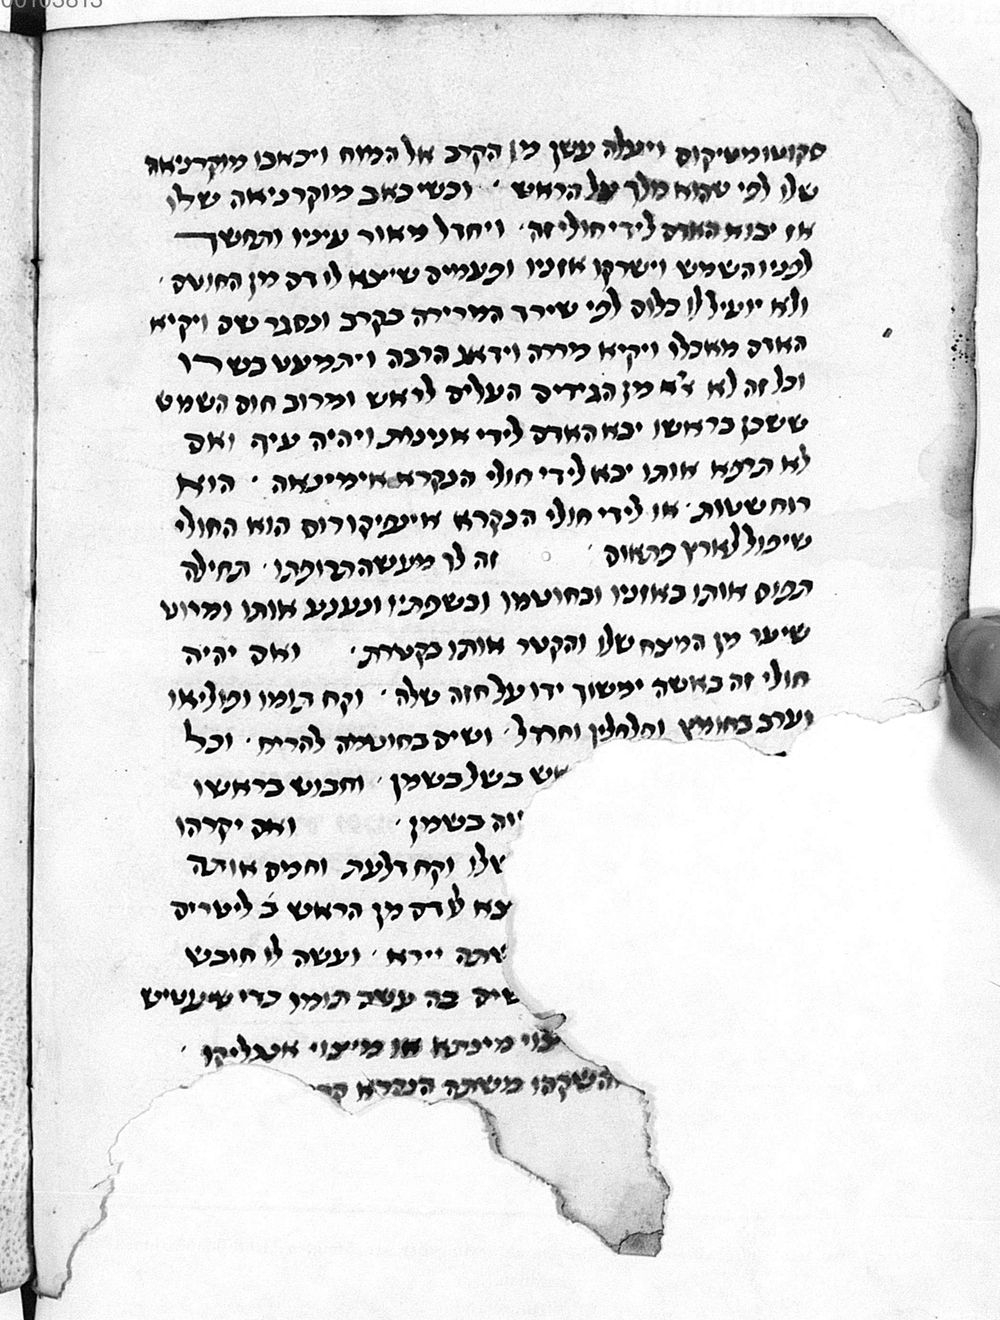 00103813
סקוטומטיקוס ויעלה עשן מן הקרב אל המוח ויכאבו מוקרניאה
שלו לפי שהוא מלך על הראש · וכשיכאב מוקרניאה שלו
אז יבוא האדם לידי חולי זה · ויחדל מאור עיניו ותחשך
לפניו השמש וישרקו אזניו ופעמים שיצא לו דם מן החוטם ·
ולא יועיל לו כלום לפי שירד המרירה בקרב ונסגר שם ויקיא
האדם מאכלו ויקיא מררה וידאג הרבה ויתמעט בשרו
וכל זה לא צ׳א מן הגידים העולים לראש ומרוב חום השמש
ששכן בראשו יבא האדם לידי אנינות ויהיה עיף ואם
לא תרפא אותו יבא לידי חולי הנקרא אימיגנאה · הוא
רוח שטות · או לידי חולי הנקרא אינפיקורוס הוא החולי
שיפול לארץ פתאום · זה לך מעשה תרופתו · תחילה
תפוס אותו באזניו ובחוטמו ובשפתיו ונענע אותו ומרוט
שיער מן המצח שלו והקטר אותו בקטרת · ואם יהיה
חולי זה באשה ימשוך ידו על חזה שלה · וקח תומו ופוליאו
וערב בחומץ וחלחלין וחרדל · ושים בחוטמה להריח · וכל
אש בשל בשמן · וחבוש בראשו
בשמן · ואם יקרהו
שלו וקח דלעת וחמם אותה
צא לו דם מן הראש ב׳ ליטרים
שתה יירא · ועשה לו חובש
שים בה עשב תומו כדי שיעטיש
מינתא או מיצוי אפוליקו ·
והשקהו משתה הנקרא